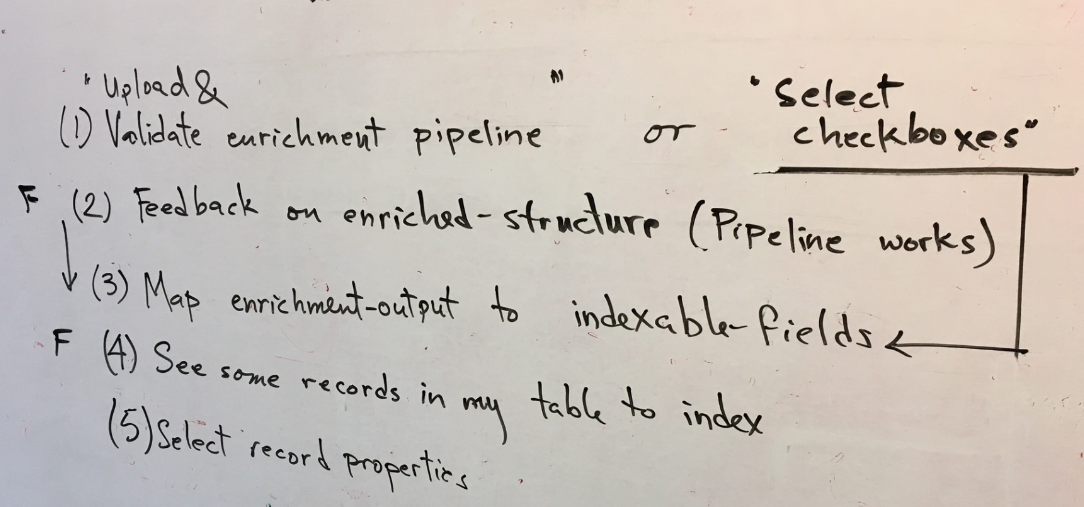 "Upload & " or "Select
(1) Validate enrichment pipeline checkboxes"
F (2) Feedback on enriched-structure (Pipeline works)
(3) Map enrichment-output to indexable-fields
F (4) See some records in my table to index
(5) Select record properties